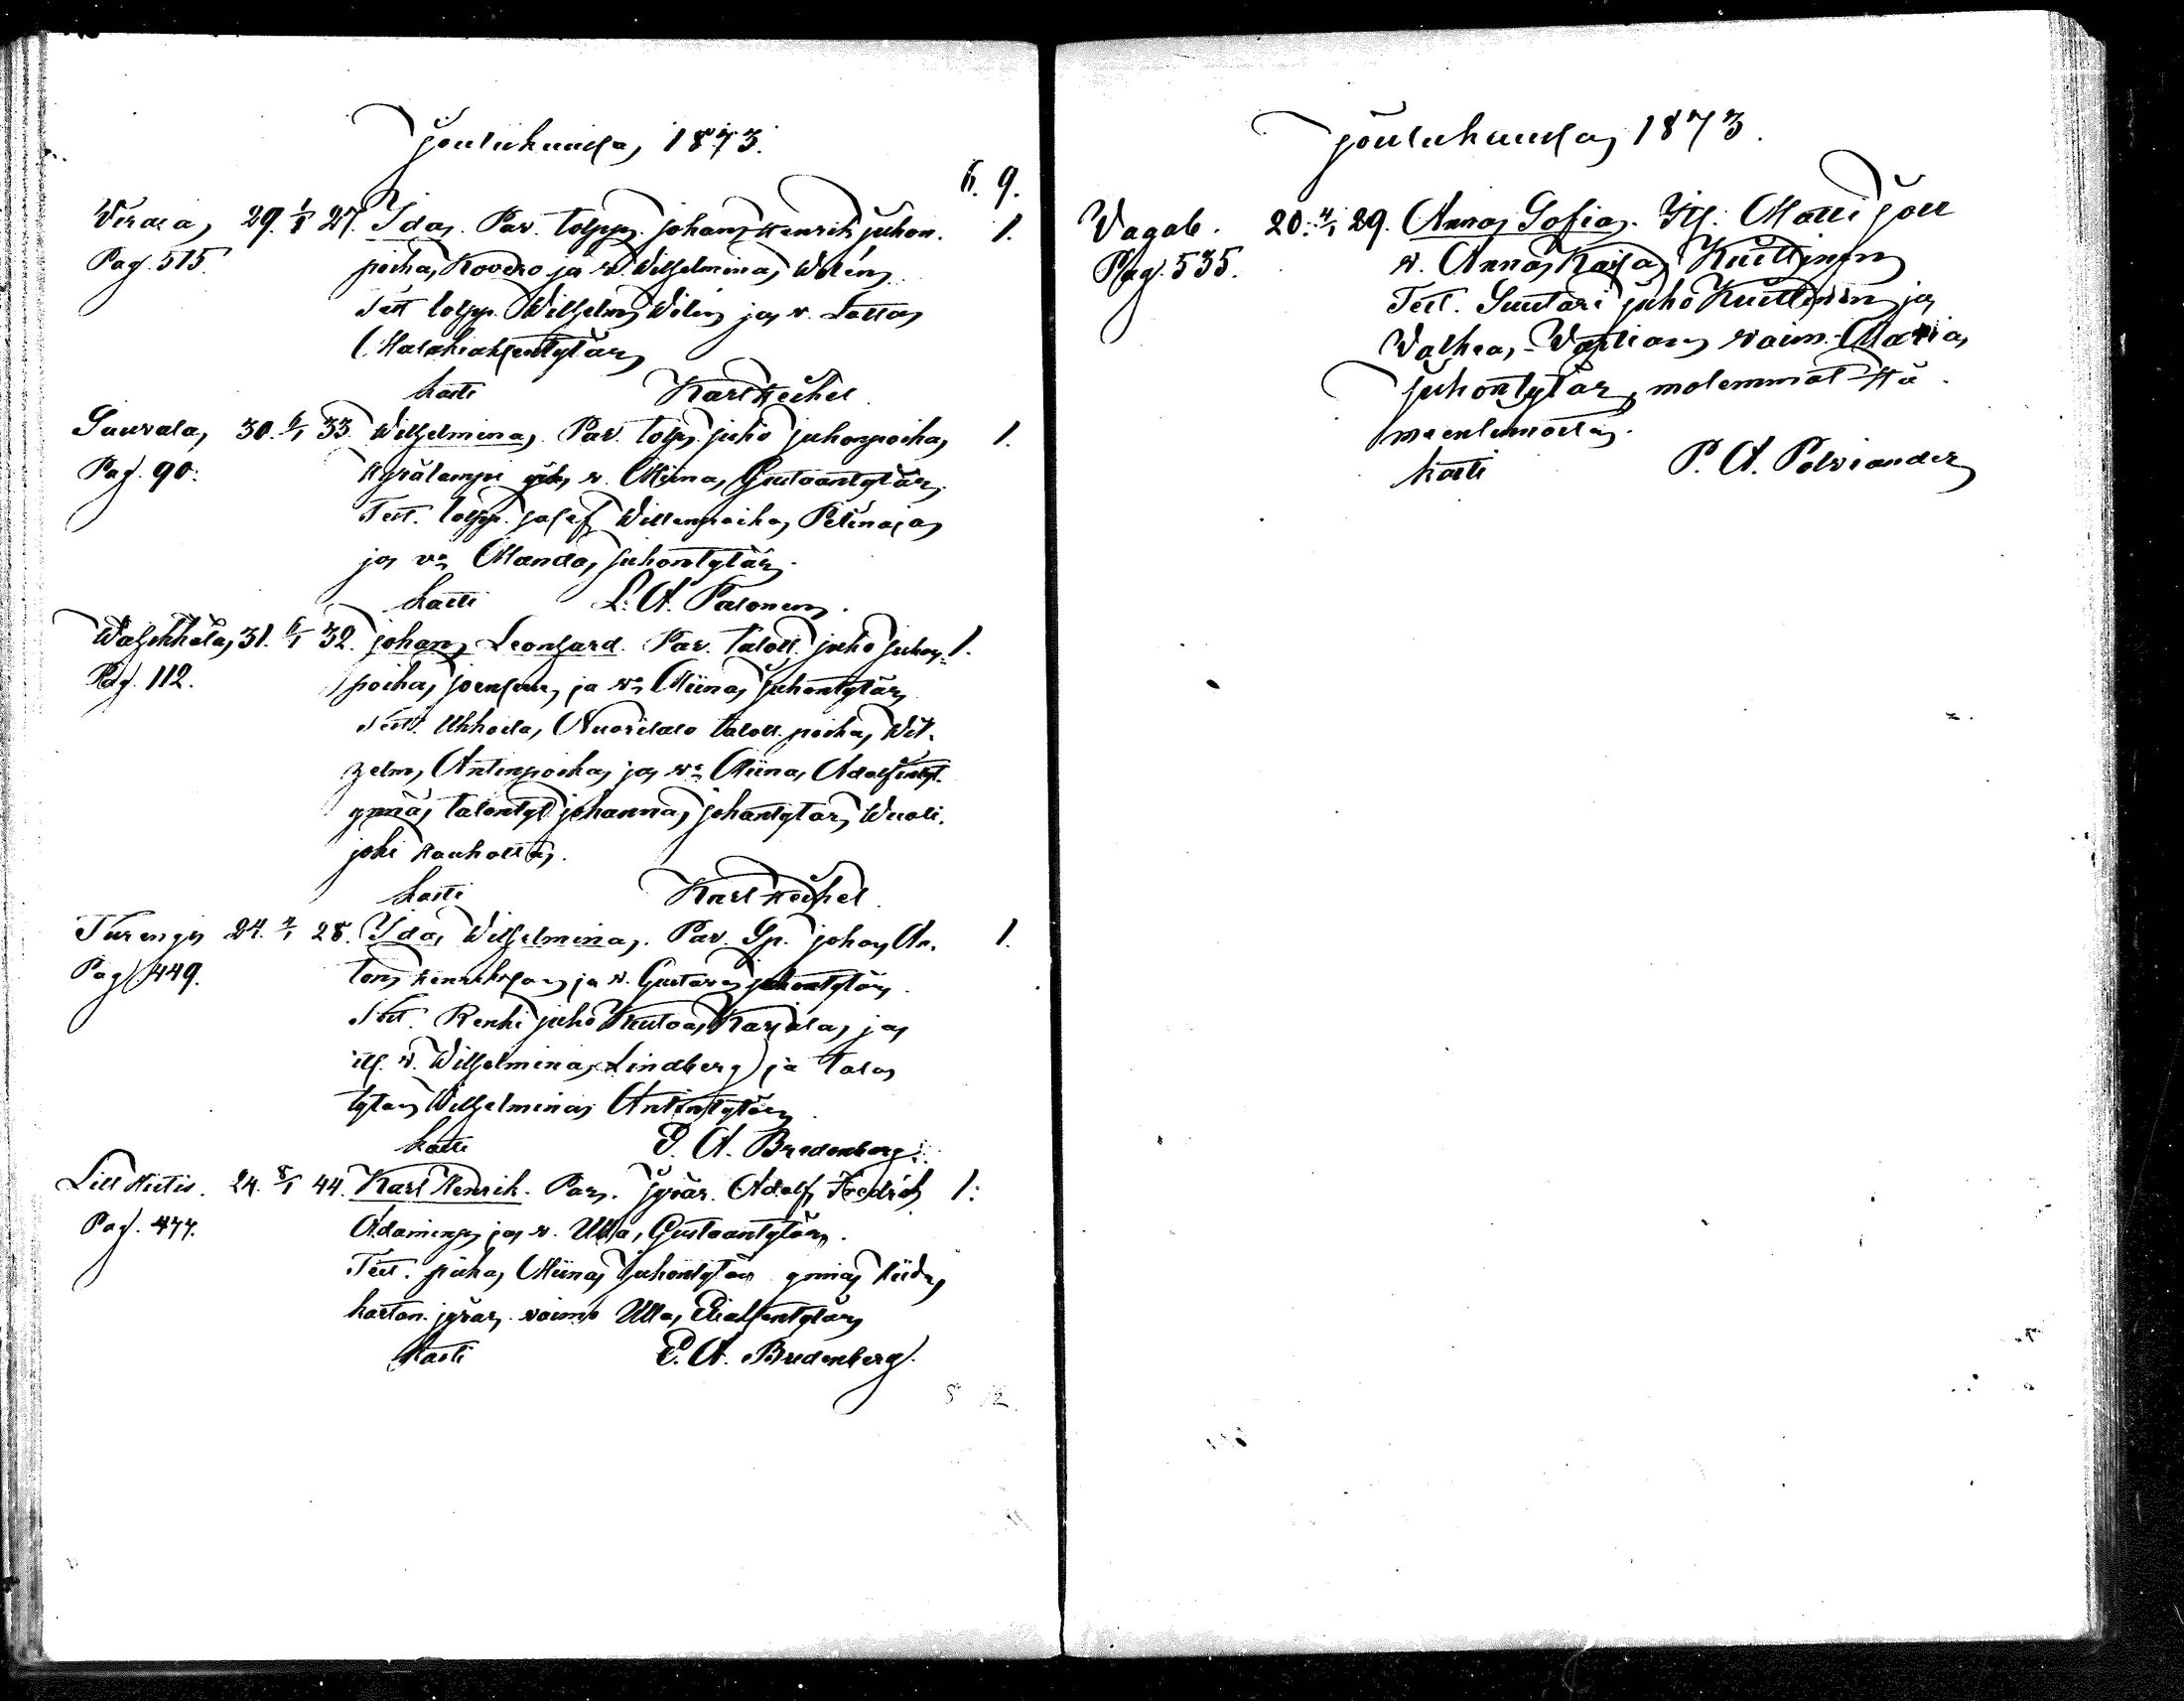 Joulukuussa 1873.
6. 9.
Virala 29. 1/1 27. Ida. Par. Torpp. Johan Henrik Juhon- 1.
Pag. 515. poika Kovero ja v. Wilhelmina Wilén
Test. torpp. Wilhelm Wilén ja v. Lotta
Malakiaksentytär
kasti Karl Heikel.
Sauvala 30. 6/1 33. Wilhelmina. Par. Torp. Juho Juhonpoika 1.
Pag. 90. Hyrälampi ja v. Miina Gustaantytär
Test. torpp. Josef Willenpoika Pelinaja
ja vo Manda Juhontytär.
kasti L. A. Palonen.
Waljakkala 31. 6/1 32. Johan Leonhard. Par. talol. Juho Juhon- 1.
Pag. 112. poika Joensuu ja vo Miina Juhontytär
Test. Ukkoila, Nuoritalo talol. poika Wil-
helm Antinpoika ja vo Miina Adolfintyt.
ynnä talontyt. Johanna Johantytär Wuoli-
joki Hauholta.
kasti Karl Heikel.
Turengi 24. 4/1 28. Ida Wilhelmina. Par. Sp. Johan An- 1.
Pag. 449. ton Henriksson ja v. Gustava Juhontytär.
Test. Renki Juho Kustaa Karjala ja
its. v. Wilhelmina Lindberg ja talon
tytär Wilhelmina Antintytär
kasti E. A. Bredenberg.
Lill Hietis. 24. 8/1 44. Karl Henrik. Par. Jyvär. Adolf Fredrik 1.
Pag. 477. Adaminp. ja v. Ulla Gustaantytär.
Test. piika Miina Juhontytär ynnä
kartan. jyvär. vaimo Ulla Eliaksentytär
kasti E. A. Bredenberg.
Joulukuussa 1873.
Vagab. 20. 4/1 29. Anna Sofia. Its. Matti
Pag. 535. v. Anna Kaisa Kuittinen
Test. Suutari Juho Kuittinen ja
Valkea-Vartian vaim. Maria
Juhontytär, molemmat Hä-
meenlinnasta.
kasti P. A. Polviander